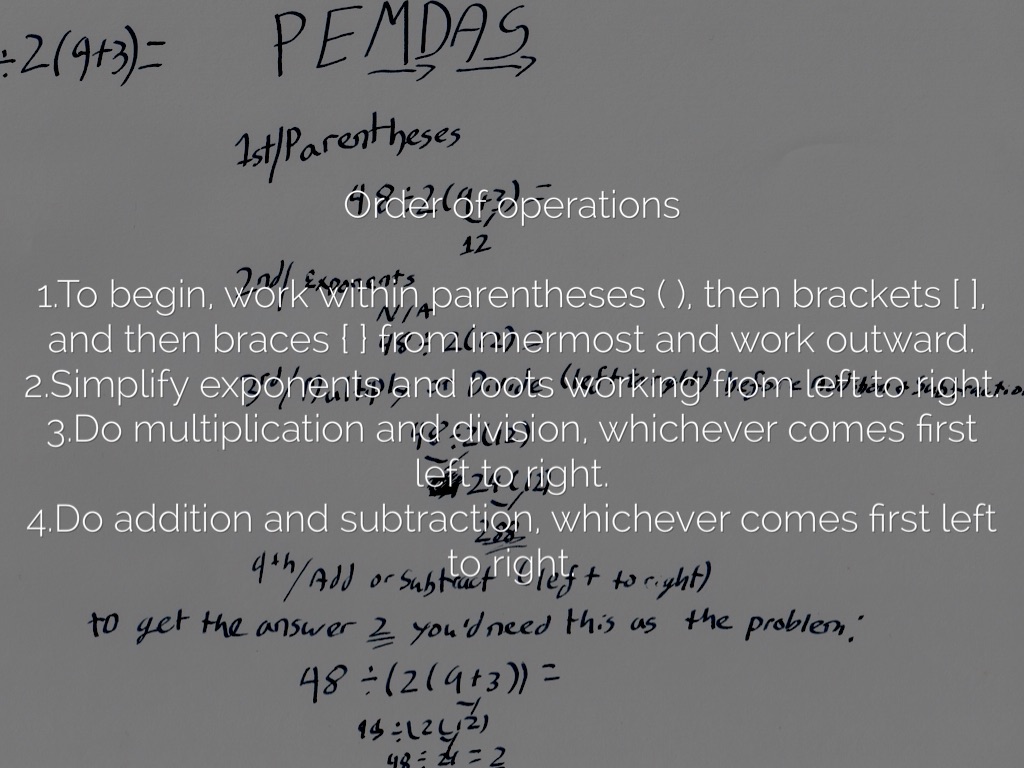 ÷2(9+3)=
PEMDAS
1st/Parentheses
48÷2(9+3)=
Order of operations
12
2nd/ Exponents
1.To begin, work within parentheses ( ), then brackets [ ],
N/A
and then braces { } from innermost and work outward.
48÷2(12)=
2.Simplify exponents and roots working from left to right.
3.Do multiplication and division, whichever comes first
48÷2(12)
left to right.
24(12)
4.Do addition and subtraction, whichever comes first left
288
to right.
4th/Add or Subtract (left to right)
to get the answer 2 you'd need this as the problem:
48÷(2(9+3))=
48÷(2(12)
48÷24=2